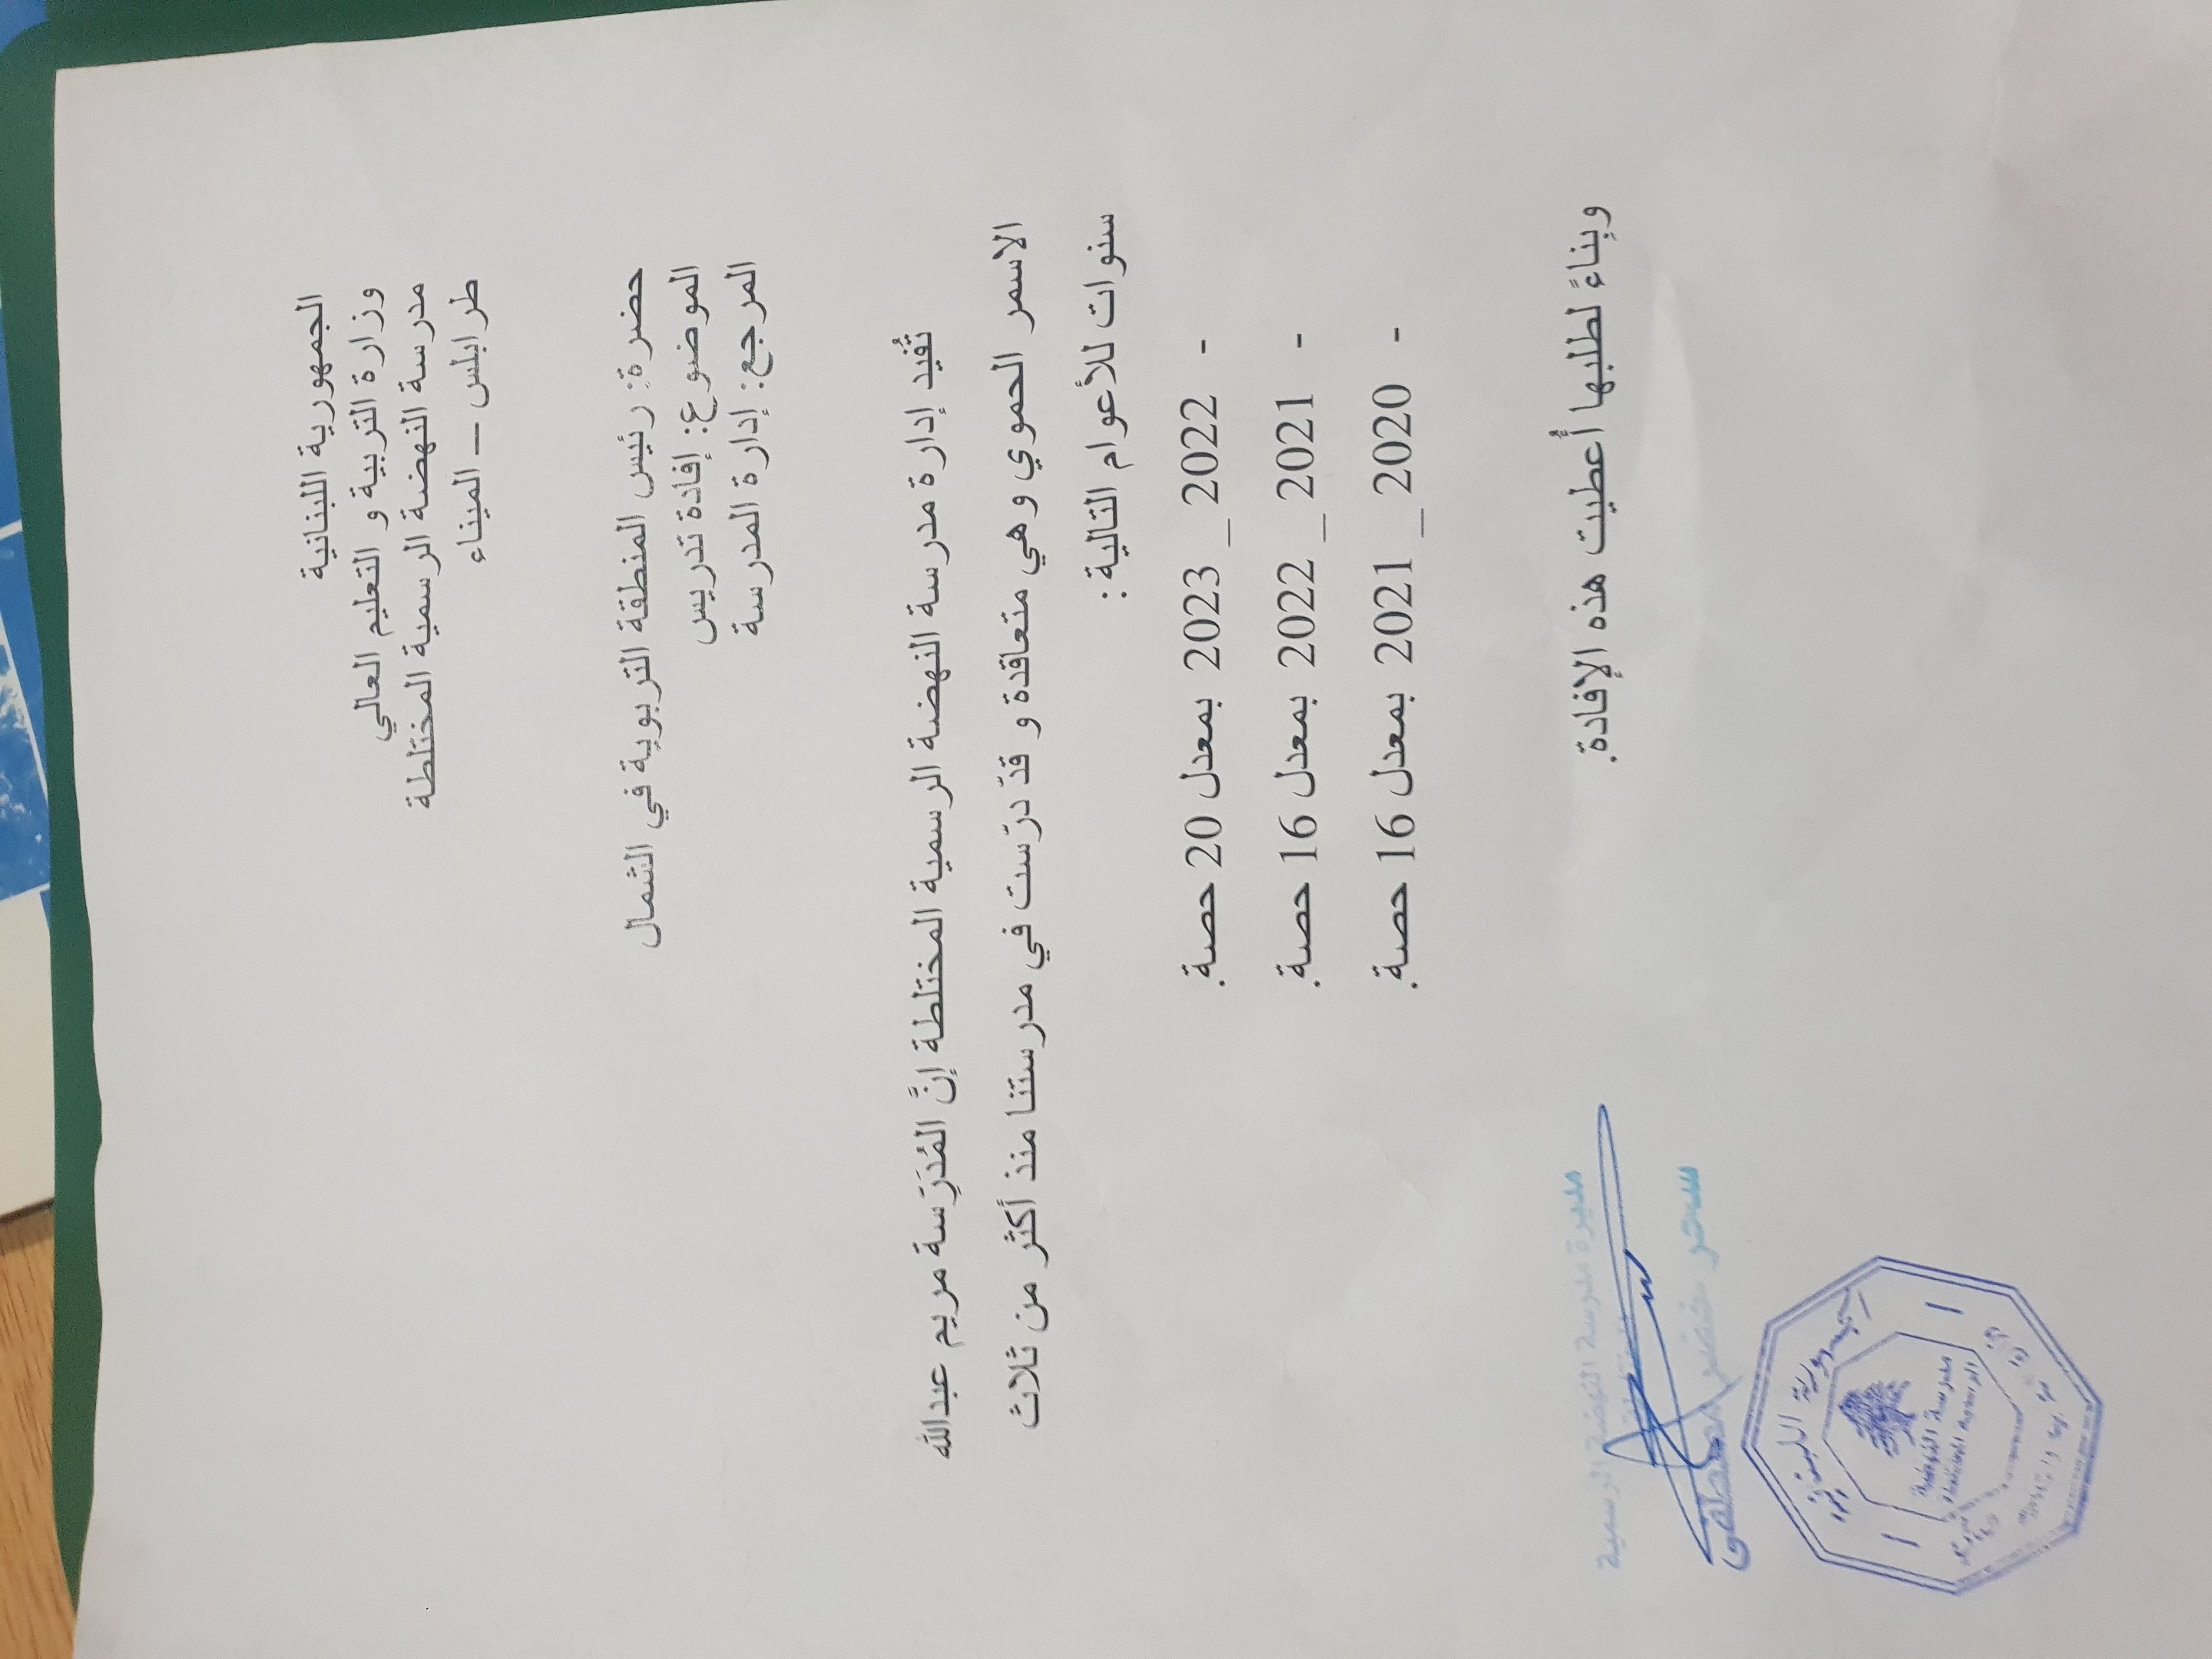 الجمهورية اللبنانية
وزارة التربية و التعليم العالي
مدرسة النهضة الرسمية المختلطة
طرابلس – الميناء
حضرة: رئيس المنطقة التربوية في الشمال
الموضوع: إفادة تدريس
المرجع: إدارة المدرسة
تُفيد إدارة مدرسة النهضة الرسمية المختلطة إنَّ المُدَرِّسة مريم عبدالله
الاسمر الحموي وهي متعاقدة و قدّ درّست في مدرستنا منذ أكثر من ثلاث
سنوات للأعوام التالية:
- 2022_ 2023 بمعدل 20 حصة.
- 2021_ 2022 بمعدل 16 حصة.
- 2020_ 2021 بمعدل 16 حصة.
وبناءً لطلبها أُعطيت هذه الإفادة.
مديرة مدرسة النهضة الرسمية
سحر خضر مصطفى
الجمهورية اللبنانية
مدرسة النهضة
الرسمية المختلطة